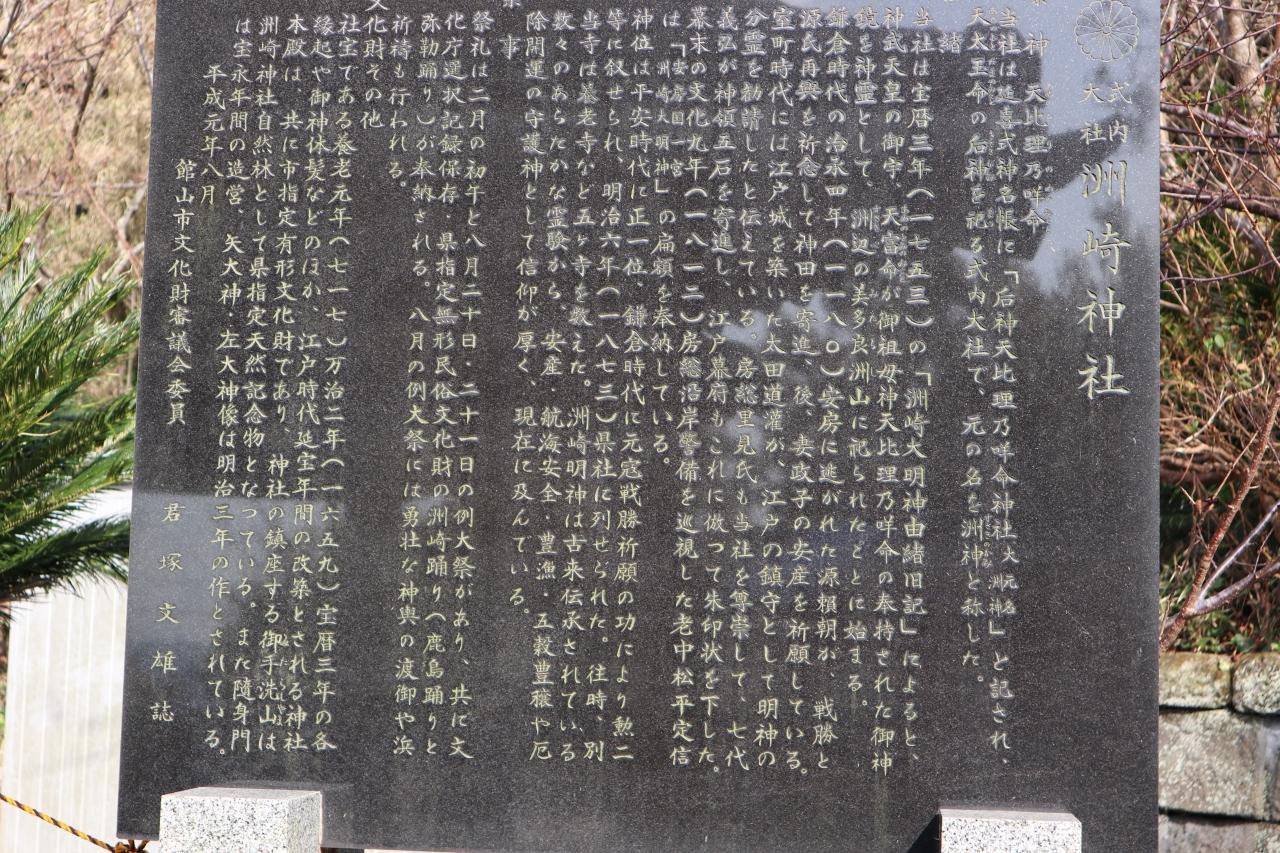 式内大社 洲崎神社
神 天比理乃咩命
当社は延喜式神名帳に「后神天比理乃咩命神社大元名洲神」と記され、
天太玉命の后神を記る式内大社で、元の名を洲神と称した。
緒
当社は宝暦三年(一七五三)の「洲崎大明神由緒旧記」によると、
神武天皇の御宇、天富命が御祖母神天比理乃咩命の奉持された御神
鏡を神霊として、洲辺の美多良洲山に祀られたことに始まる。
鎌倉時代の治承四年(一一八〇)安房に逃がれた源頼朝が、戦勝と
源氏再興を祈念して神田を寄進、後、妻政子の安産を祈願している。
室町時代には江戸城を築いた太田道灌が、江戸の鎮守として明神の
分霊を勧請したと伝えている。房総里見氏も当社を尊崇して、七代
義弘が神領五石を寄進し、江戸幕府もこれに倣って朱印状を下した。
幕末の文化九年(一八一二)房総沿岸警備を巡視した老中松平定信
は「安房国一宮洲崎大明神」の扁額を奉納している。
神位は平安時代に正一位、鎌倉時代に元寇戦勝祈願の功により勲二
等に叙せられ、明治六年(一八七三)県社に列せられた。往時、別
当寺は養老寺など五ヶ寺を数えた。洲崎明神は古来伝承されている
数々のあらたかな霊験から、安産・航海安全・豊漁・五穀豊穣や厄
除開運の守護神として信仰が厚く、現在に及んでいる。
祭事
祭礼は二月の初午と八月二十日・二十一日の例大祭があり、共に文
化庁選択記録保存・県指定無形民俗文化財の洲崎踊り(鹿島踊りと
弥勒踊り)が奉納される。八月の例大祭には勇壮な神輿の渡御や浜
祈祷も行われる。
文化財その他
社宝である養老元年(七一七)万治二年(一六五九)宝暦三年の各
縁起や御神体髪などのほか、江戸時代延宝年間の改築とされる神社
本殿は、共に市指定有形文化財であり、神社の鎮座する御手洗山は
洲崎神社自然林として県指定天然記念物となっている。また随身門
は宝永年間の造営、矢大神・左大神像は明治三年の作とされている。
平成元年八月
館山市文化財審議会委員 君塚文雄誌